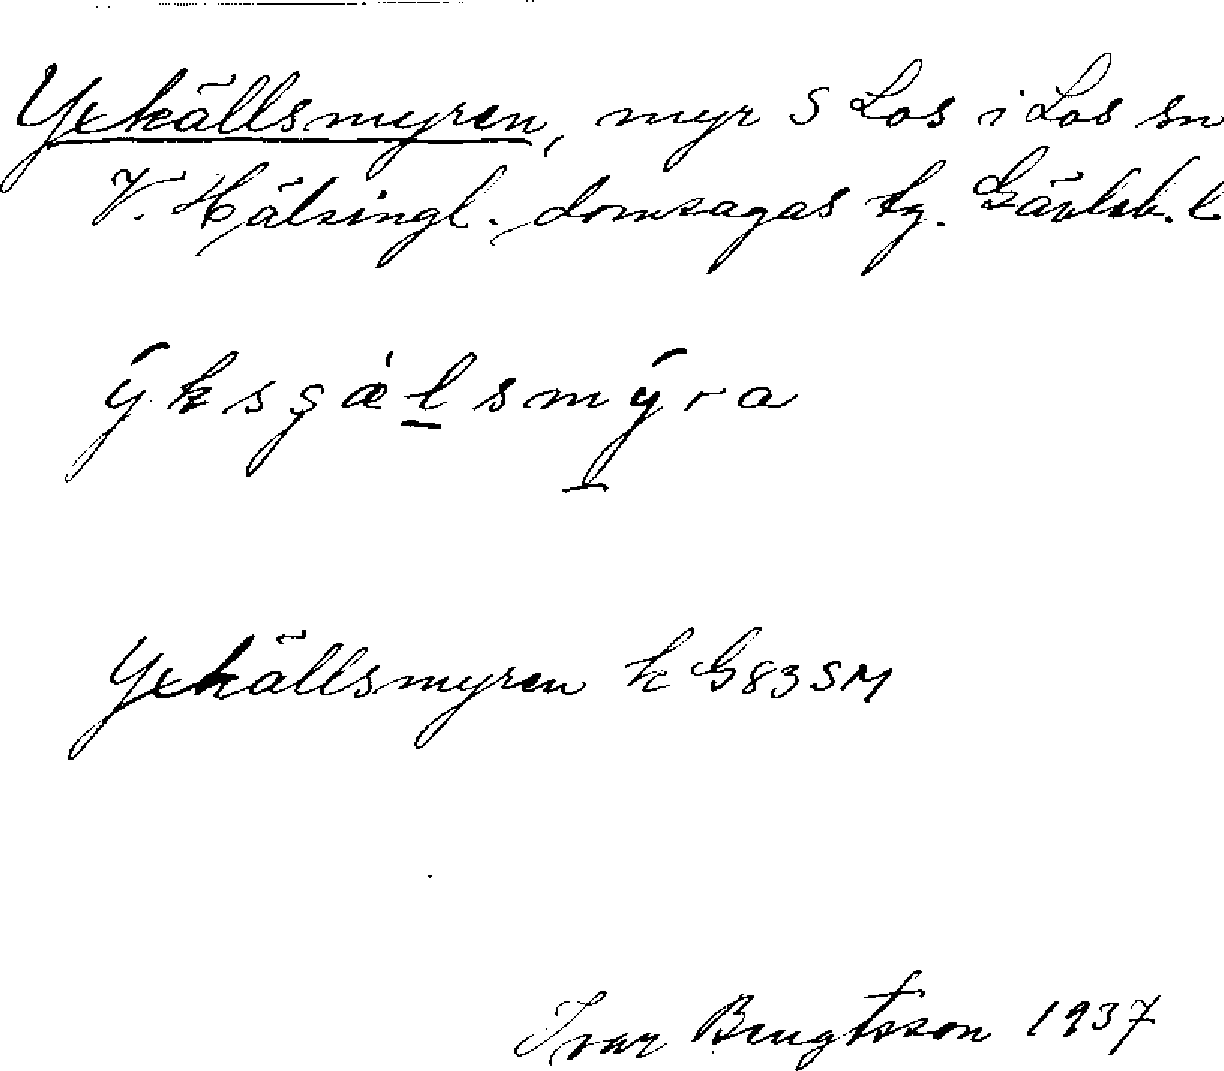 Yxkällsmyren, myr S Los i Los sn
V. Hälsingl. domsagas tg. Gävleb. l
ýksgǽlsmýra
Yxkällsmyren k G83SM
Ivar Bengtsson 1937